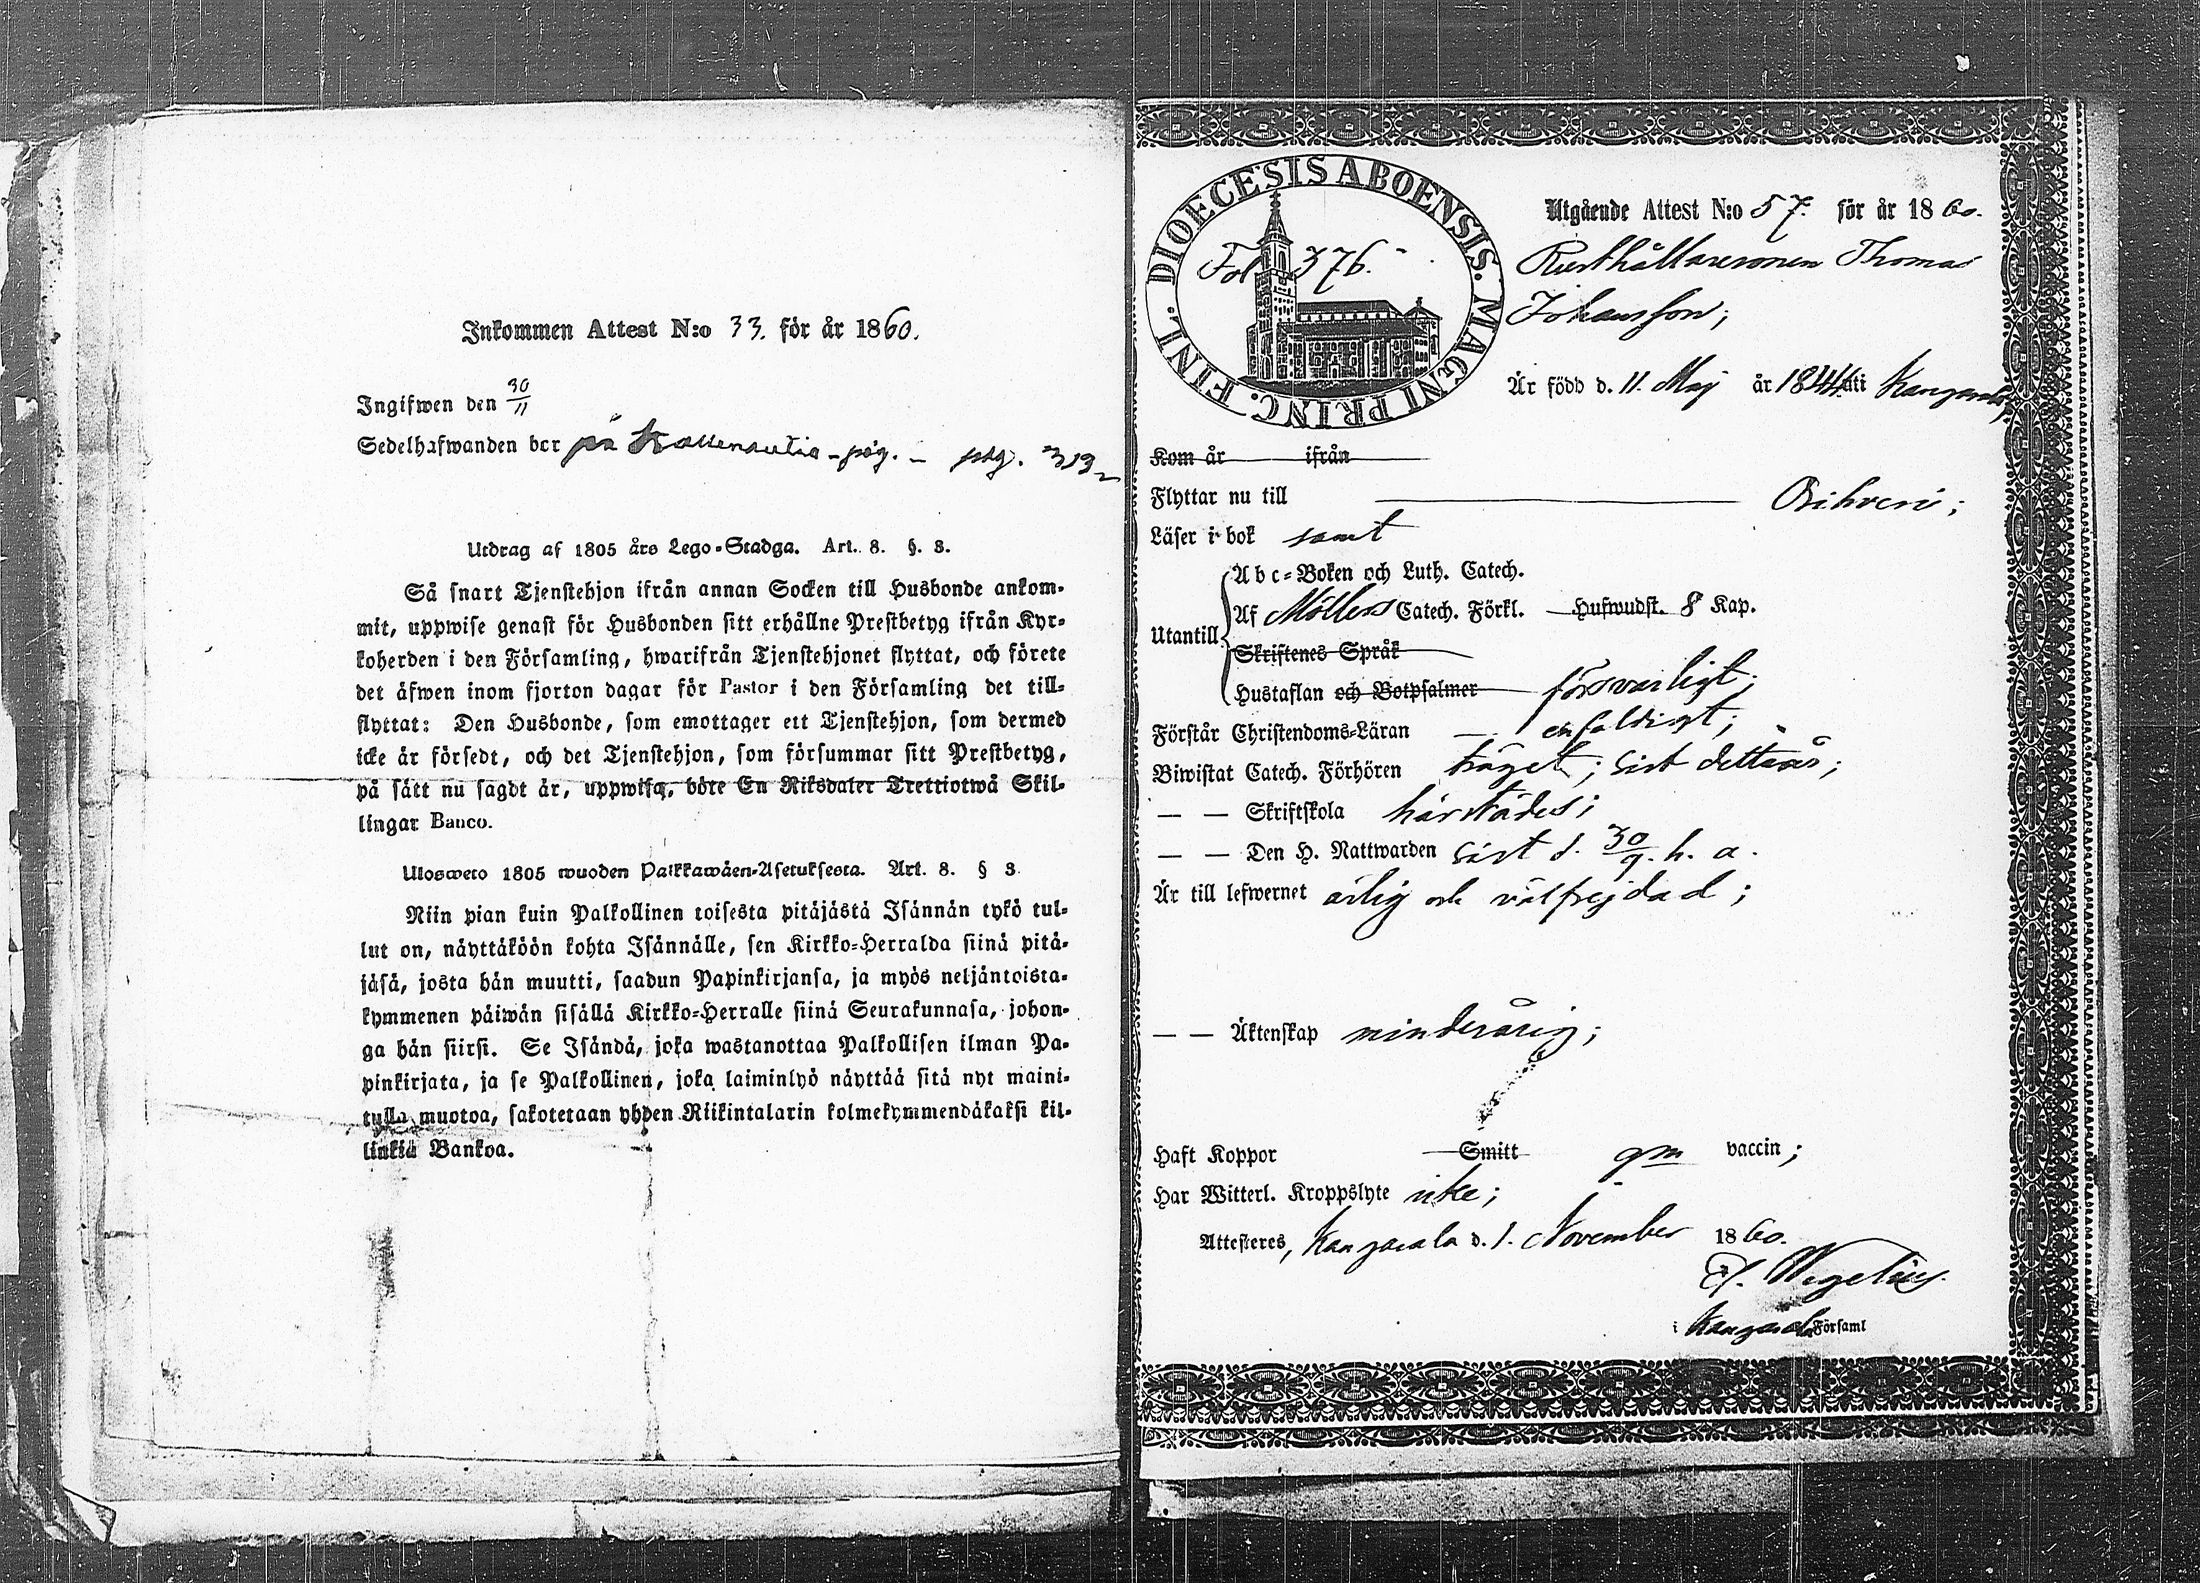 Inkommen Attest N:o 33. för år 1860.
Ingifwen den 30/11
Sedelhafwanden bor på pag. 313
Utdrag af 1805 års Lego-Stadga. Art. 8. §. 3.
Så snart Tjenstehjon ifrån annan Socken till Husbonde ankom-
mit, uppwise genast för Husbonden sitt erhållne Prestbetyg ifrån Kyr-
koherden i den Församling, hwarifrån Tjenstehjonet flyttat, och förete
det äfwen inom fjorton dagar för Pastor i den Församling det till-
flyttat: Den Husbonde, som emottager ett Tjenstehjon, som dermed
icke är försedt, och det Tjenstehjon, som försummar sitt Prestbetyg,
på sätt nu sagdt är, uppwisa, böte En Riksdaler Trettiotwå Skil-
lingar Banco.
Ulosweto 1805 wuoden Palkkawäen-Asetuksesta. Art. 8. § 3.
Niin pian kuin Palkollinen toisesta pitäjästä Isännän tykö tul-
lut on, näyttäköön kohta Isännälle, sen Kirkko-Herralda siinä pitä-
jäsä, josta hän muutti, saadun Papinkirjansa, ja myös neljäntoista-
kymmenen päiwän sisällä Kirkko-Herralle siinä Seurakunnasa, johon-
ga hän siirsi. Se Isändä, joka wastanottaa Palkollisen ilman Pa-
pinkirjata, ja se Palkollinen, joka laiminlyö näyttää sitä nyt maini-
tulla muotoa, sakotetaan yhden Riikintalarin kolmekymmendäkaksi kil-
linkiä Bankoa.
DIOECESIS ABOENSIS. MAGNI PRINC. FINL.
Fol 376.
Utgående Attest N:o 57. för år 1860.
Rusthållaresonen Thomas
Johansson;
Är född d. 11. Maj år 1844 uti Kangasala,
Kom år ifrån
Flyttar nu till Orihvesi;
Läser i bok samt
Utantill
Abc-Boken och Luth. Catech.
Af Möllers Catech. Förkl. Hufwudst. 8 Kap.
Skriftenes Språk
Hustaflan och Botpsalmer försvarligt;
Förstår Christendoms-Läran enfaldigt;
Biwistat Catech. Förhören tröget; sist detta år;
— — Skriftskola härstädes;
— — Den H. Nattwarden sist d. 30/9. h. a.
Är till lefwernet ärlig och välfrejdad;
— — Äktenskap minderårig;
Haft Koppor Smitt gm vaccin;
Har Witterl. Kroppslyte icke;
Attesteres, Kangasala d. 1. November 1860.
Wegelius.
i Kangasala Församl